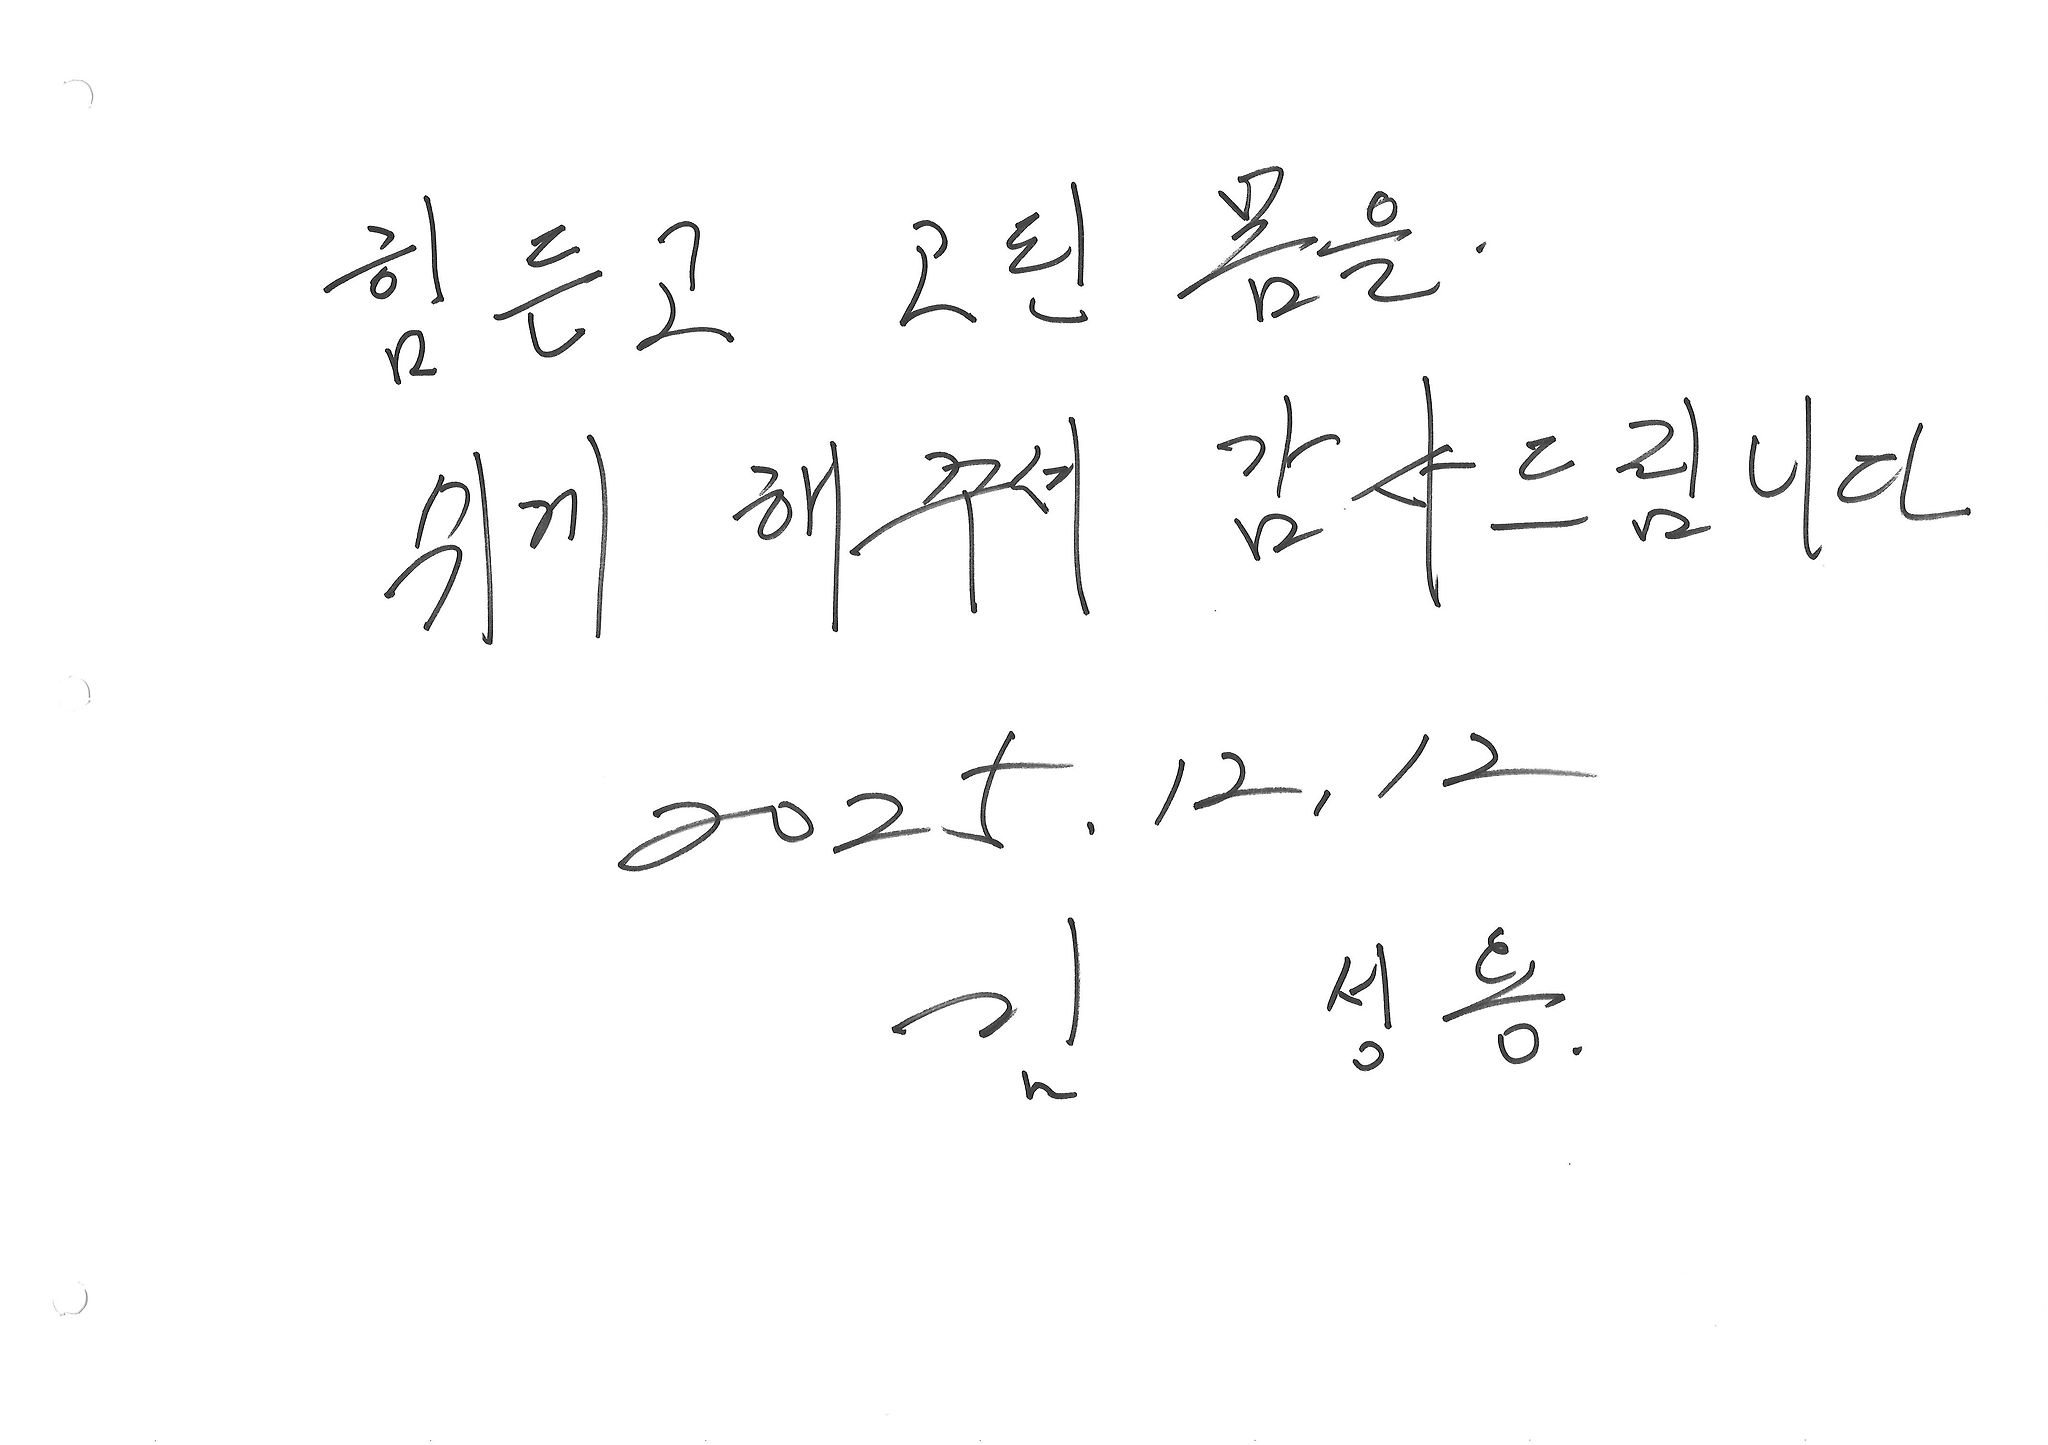 힘든고 고된 몸을.
쉬게 해주셔 감사드립니다
2025. 12. 12
김 성용.